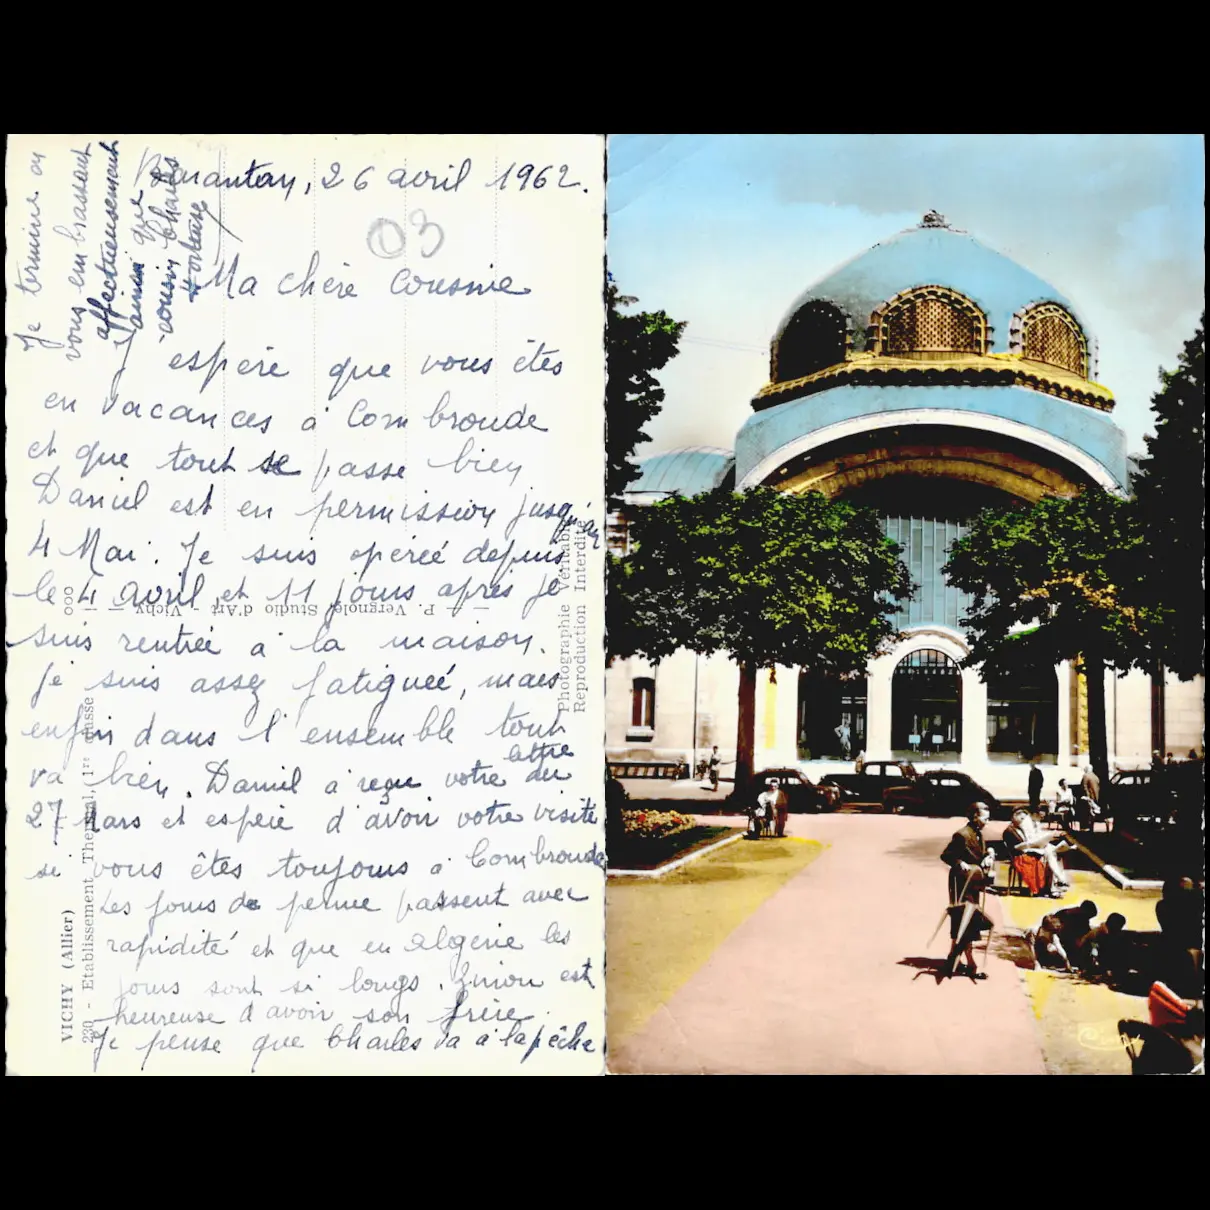 Barantan, 26 avril 1962.
03
Ma chère Cousine
J'espère que vous êtes
en vacances à Combronde
et que tout se passe bien
Daniel est en permission jusqu'au
4 Mai. Je suis opéréé depuis
le 4 avril et 11 jours après je
suis rentrée à la maison.
Je suis assez fatiguéé, mais
enfin dans l'ensemble tout
va bien. Daniel a reçu votre lettre du
27 Mars et espère d'avoir votre visite
si vous êtes toujours à Combronde
Les jours de perme passent avec
rapidité et que en Algérie les
jours sont si longs. est
heureuse d'avoir son frère.
Je pense que Charles va à la pêche
Je termine en
vous embrassant
affectueusement
ainsi que
cousin Charles
Hortense
VICHY (Allier)
230 - Etablissement Thermal (1re classe)
P. Vergnole, Studio d'Art - Vichy
Photographie Véritable
Reproduction Interdite